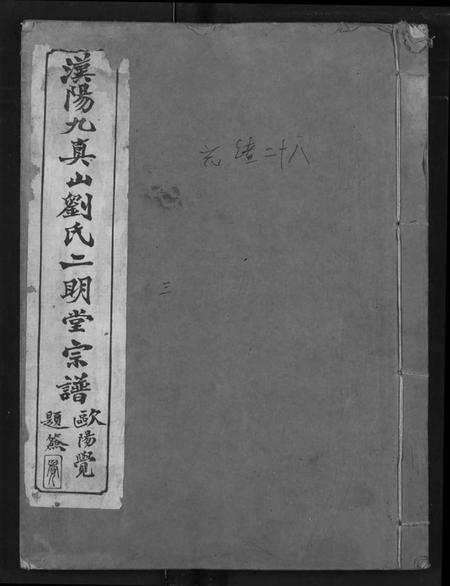 漢陽九真山劉氏二明堂宗譜
歐陽覺
題籤
光緒二十八
三